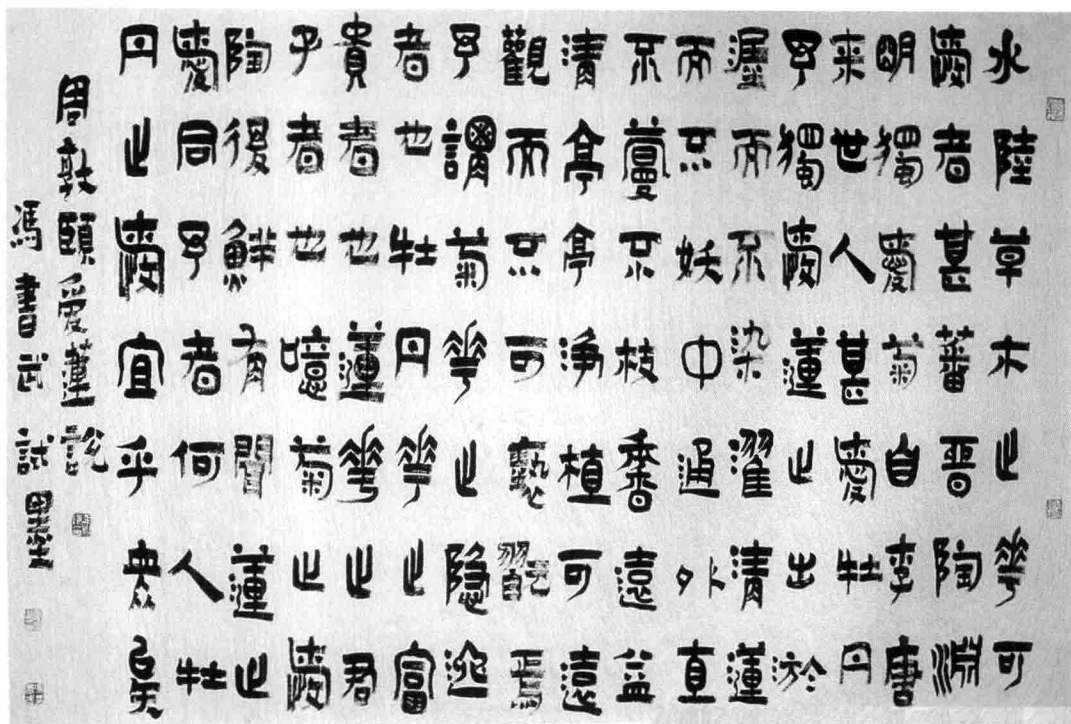 水陸草木之華可
愛者甚蕃晉陶淵
明獨愛菊自李唐
来世人甚愛牡丹
予獨愛蓮之出於
渥而不染濯清蓮
而不妖中通外直
不蔓不枝香遠益
清亭亭净植可遠
觀而不可褻翫焉
予謂菊華之隐逸
者也牡丹華之富
貴者也蓮華之君
子者也噫菊之愛
陶後鮮有聞蓮之
愛同予者何人牡
丹之愛宜乎衆矣
周敦頤愛蓮說
馮書武試墨